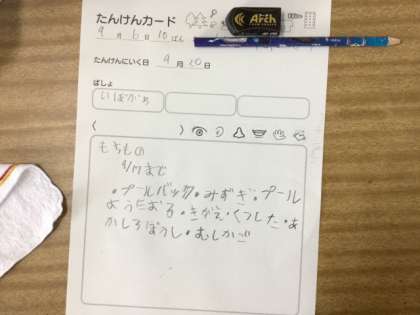 たんけんカード
9月6日10ばん
たんけんにいく日 9月20日
ばしょ
いけがき
( )
もちもの
9/17まで
・プールバック・みずぎ・プール
ようたおる・きがえ・くつした・あ
かしろぼうし・むしかご
Arch